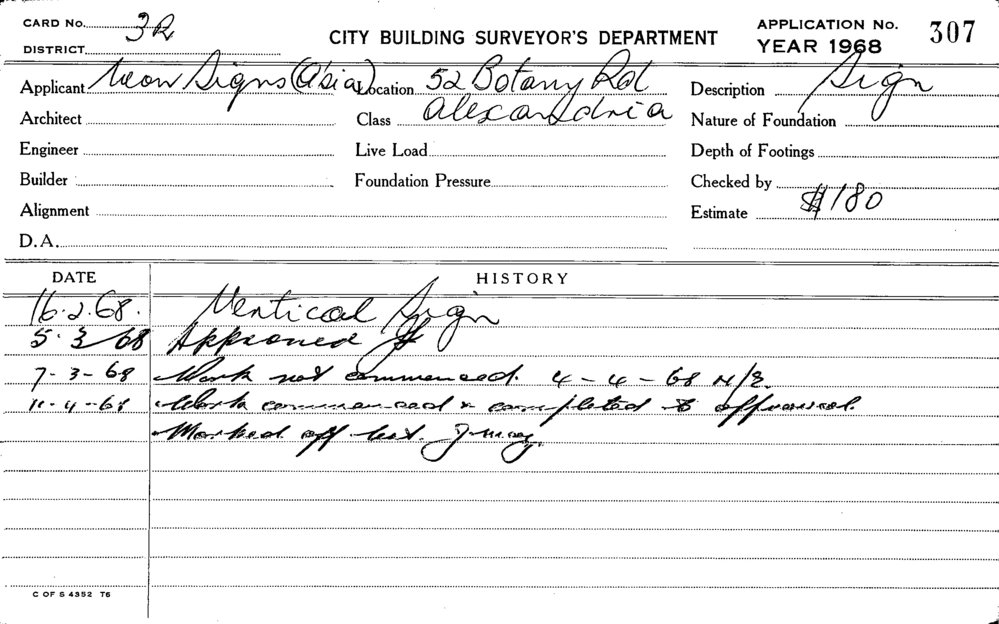 CARD No. 3R
DISTRICT
CITY BUILDING SURVEYOR'S DEPARTMENT
APPLICATION No. 307
YEAR 1968
Applicant Neon Signs (A'sia) Location 52 Botany Rd Description Sign
Architect Class Alexandria Nature of Foundation
Engineer Live Load Depth of Footings
Builder Foundation Pressure Checked by
Alignment Estimate $180
D.A.
DATE HISTORY
16.2.68. Vertical Sign
5.3.68 Approved
7-3-68 Work not commenced. 4-4-68 N/S.
11-4-68 Work commenced & completed to approval.
Marked off list.
C OF S 4352 T6